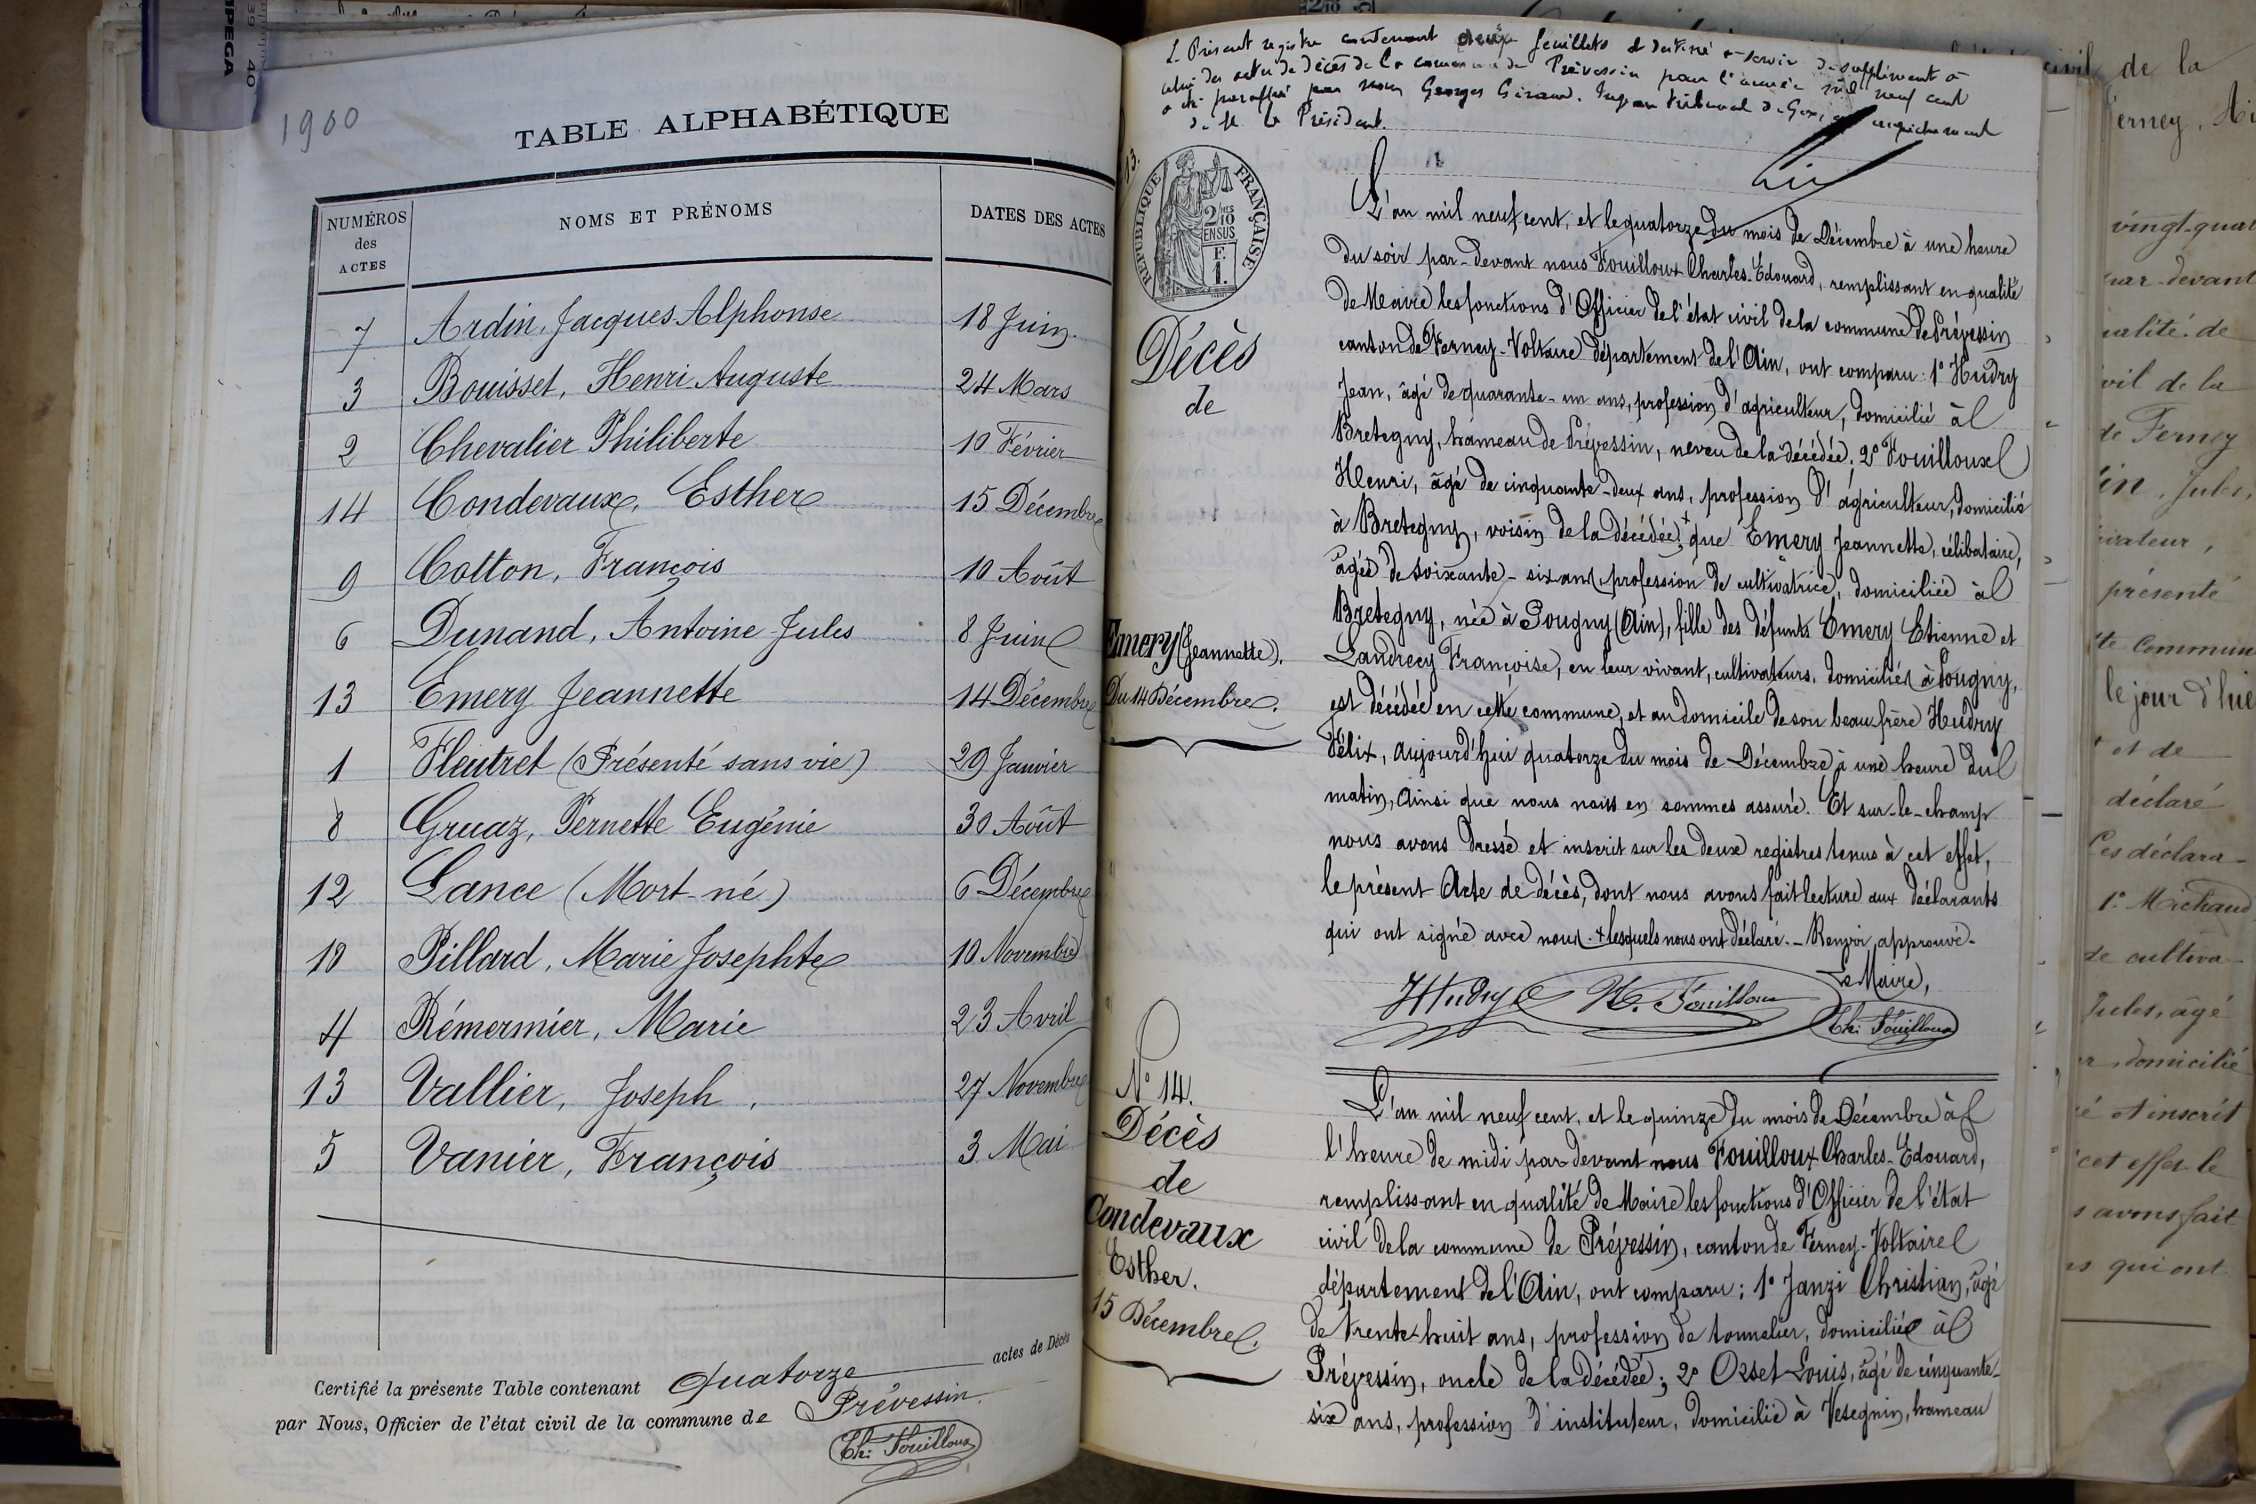 1900
TABLE ALPHABÉTIQUE
NUMÉROS des ACTES
NOMS ET PRÉNOMS
DATES DES ACTES
7 Ardin, Jacques Alphonse 18 Juin
3 Bouisset, Henri Auguste 24 Mars
2 Chevalier Philiberte 10 Février
14 Condevaux, Esther 15 Décembre
9 Cotton, François 10 Août
6 Dunand, Antoine Jules 8 Juin
13 Emery Jeannette 14 Décembre
1 Fleutret (Présenté sans vie) 29 Janvier
8 Gruaz, Pernette Eugénie 30 Août
12 Lance (Mort-né) 6 Décembre
10 Pillard, Marie Josephte 10 Novembre
4 Rémermier, Marie 23 Avril
13 Vallier, Joseph 27 Novembre
5 Vanier, François 3 Mai
Certifié la présente Table contenant Quatorze actes de Décès
par Nous, Officier de l'état civil de la commune de Prévessin.
Ch: Fouilloux
Le Présent registre contenant deux feuillets et destiné à servir de supplément à
celui des actes de décès de la commune de Prévessin pour l'année mil neuf cent
a été paraffé par nous Georges Giraud, Juge au tribunal de Gex, en empêchement
de M. le Président.
13.
RÉPUBLIQUE FRANÇAISE
2/10
EN SUS
F.
1.
Décès
de
Emery (Jeannette).
Du 14 Décembre.
L'an mil neuf cent, et le quatorze du mois de Décembre à une heure
du soir par-devant nous Fouilloux Charles-Edouard, remplissant en qualité
de Maire les fonctions d'Officier de l'état civil de la commune de Prévessin
canton de Ferney-Voltaire département de l'Ain, ont comparu: 1° Hudry
Jean, âgé de quarante-un ans, profession d'agriculteur, domicilié à
Bretegny, hameau de Prévessin, neveu de la décédée; 2° Fouilloux
Henri, âgé de cinquante-deux ans, profession d'agriculteur, domicilié
à Bretegny, voisin de la décédée, + que Emery Jeannette, célibataire,
âgée de soixante-six ans profession de cultivatrice, domiciliée à
Bretegny, née à Pougny (Ain), fille des défunts Emery Etienne et
Landrecy Françoise, en leur vivant, cultivateurs, domiciliés à Pougny,
est décédée en cette commune, et au domicile de son beau frère Hudry
Félix, aujourd'hui quatorze du mois de Décembre à une heure du
matin, ainsi que nous nous en sommes assuré. Et sur-le-champ
nous avons dressé et inscrit sur les deux registres tenus à cet effet,
le présent Acte de décès, dont nous avons fait lecture aux déclarants
qui ont signé avec nous. + lesquels nous ont déclaré. – Renvoi approuvé –
Le Maire,
JHudry H. Fouilloux Ch: Fouilloux
N° 14.
Décès
de
Condevaux
Esther.
15 Décembre.
L'an mil neuf cent, et le quinze du mois de Décembre à
l'heure de midi par-devant nous Fouilloux Charles-Edouard,
remplissant en qualité de Maire les fonctions d'Officier de l'état
civil de la commune de Prévessin, canton de Ferney-Voltaire
département de l'Ain, ont comparu: 1° Janzi Christian, âgé
de trente-huit ans, profession de tonnelier, domicilié à
Prévessin, oncle de la décédée; 2° Orset Louis, âgé de cinquante-
six ans, profession d'instituteur, domicilié à Vesegnin, hameau
civil de la
vingt-quat
par-devant
ualité de
ivil de la
de Ferney
présenté
tte Commun
le jour d'hie
et de
déclaré
Ces déclara-
1° Michaud
de cultiva-
Jules, âgé
domicilié
é et inscrit
cet effet le
s avons fait
qui ont